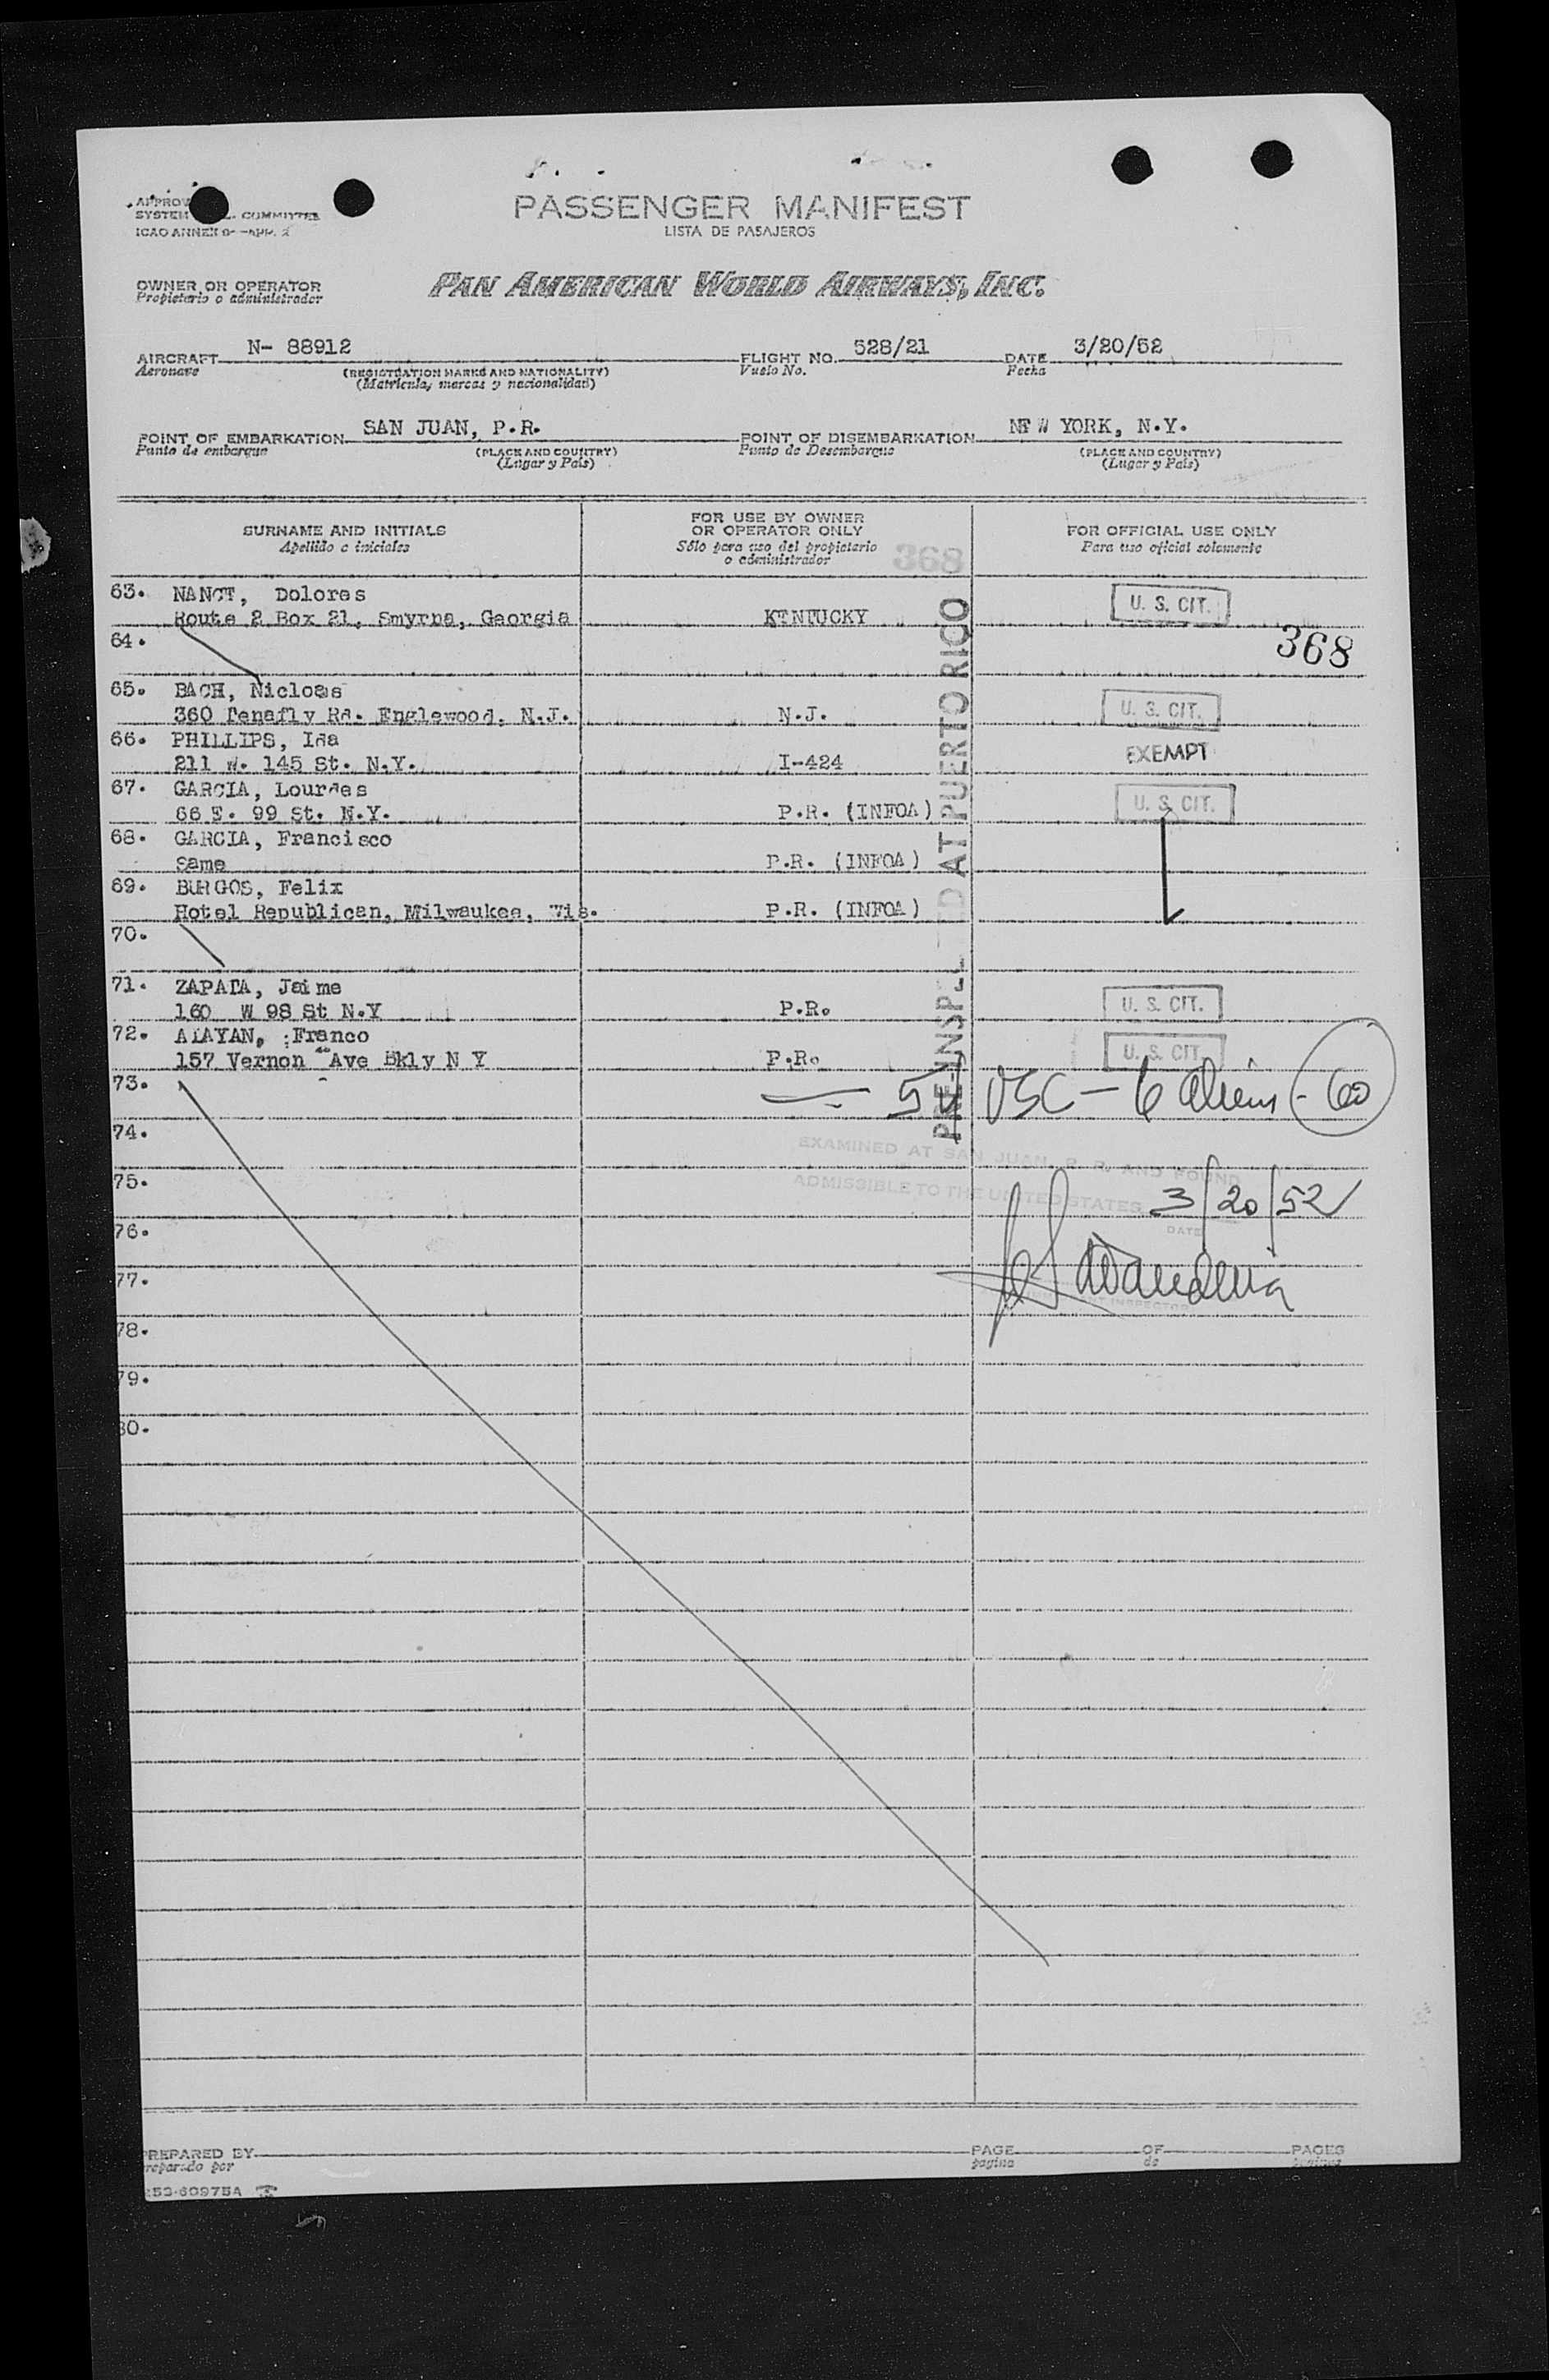 PASSENGER MANIFEST
LISTA DE PASAJEROS
SYSTEM COMMITTEE
ICAO ANNEX 9 -APP. 2
OWNER OR OPERATOR
Propietario o administrador
PAN AMERICAN WORLD AIRWAYS, INC.
AIRCRAFT N- 88912 FLIGHT NO. 528/21 DATE 3/20/52
Aeronave (REGISTRATION MARKS AND NATIONALITY) Vuelo No. Fecha
(Matricula, marcas y nacionalidad)
POINT OF EMBARKATION SAN JUAN, P.R. POINT OF DISEMBARKATION NEW YORK, N.Y.
Punto de embarque (PLACE AND COUNTRY) Punto de Desembarque (PLACE AND COUNTRY)
(Lugar y País) (Lugar y País)
SURNAME AND INITIALS
Apellido e iniciales
FOR USE BY OWNER
OR OPERATOR ONLY
Sólo para uso del propietario
o administrador
368
FOR OFFICIAL USE ONLY
Para uso oficial solamente
63. Dolores
Route 2 Box 21, Smyrna, Georgia KENTUCKY U. S. CIT.
64. 368
65. BACH,
360 Tenafly Rd. Englewood, N.J. N.J. U. S. CIT.
66. PHILLIPS, Ida
211 W. 145 St. N.Y. I-424 EXEMPT
67. GARCIA, Lourdes
66 E. 99 St. N.Y. P.R. (INFOA) U. S. CIT.
68. GARCIA, Francisco
Same P.R. (INFOA)
69. BURGOS, Felix
Hotel Republican, Milwaukee, Wis. P.R. (INFOA)
70.
71. ZAPATA, Jaime
160 W 98 St N.Y P.R. U. S. CIT.
72. Franco
157 Vernon Ave Bkly N Y P.R. U. S. CIT.
73. 54 USC - 6 Aliens - 60
74.
EXAMINED AT SAN JUAN, P. R. AND FOUND
75.
ADMISSIBLE TO THE UNITED STATES 3/20/52
DATE
76.
77.
78.
79.
80.
PRE-INSPECTED AT PUERTO RICO
PREPARED BY PAGE OF PAGES
preparado por pagina de paginas
253-60975A